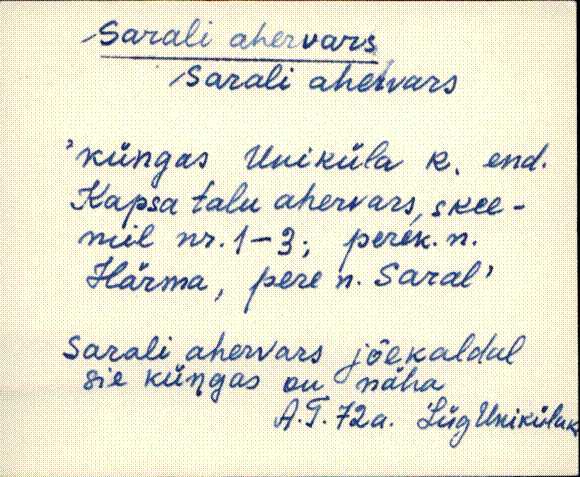 Sarali ahervars
Sarali ahervars
'küngas Uniküla k. end.
Kapsa talu ahervars, skee-
mil nr. 1-3; perek. n.
Härma, pere n. Saral'
Sarali ahervars jõekaldal
sie küngas on näha
A.T. 72a. Lüg Uniküla k.